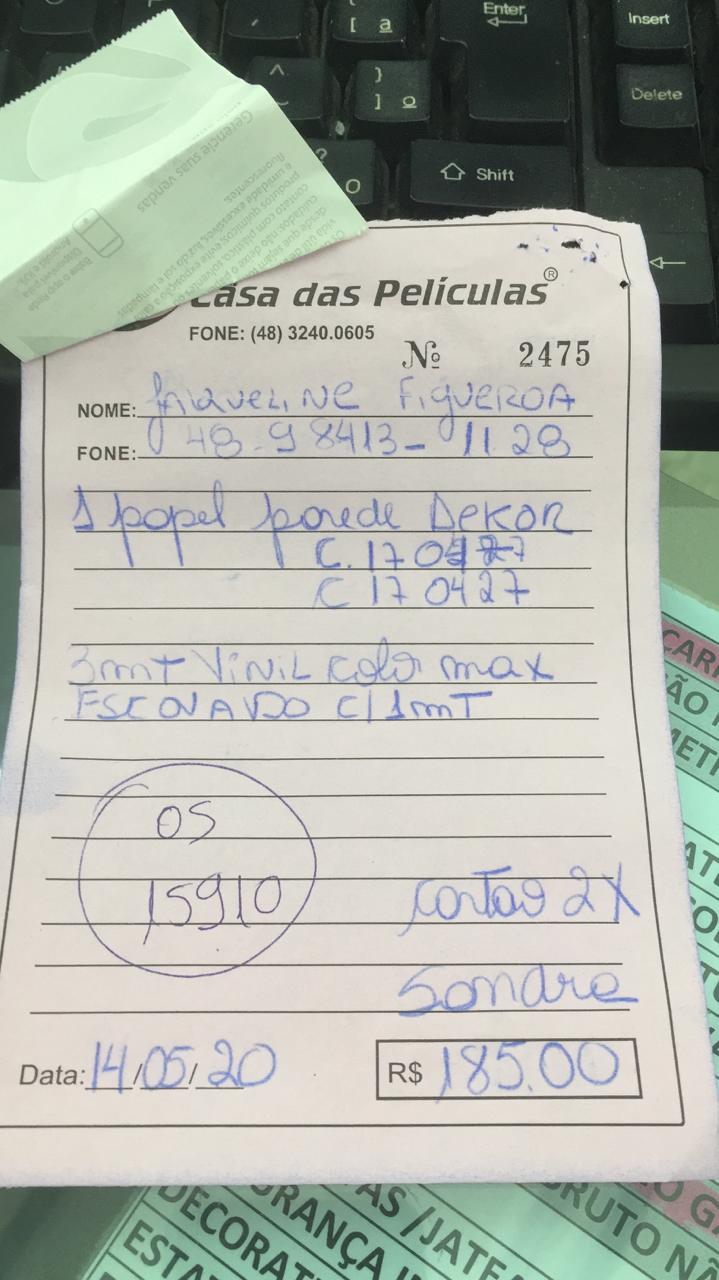 [ a
Enter
Insert
^
~
}
] º
Delete
?
Shift
Gerencie suas vendas
Casa das Películas®
FONE: (48) 3240.0605
Nº 2475
NOME: JAIQUELINE FIGUEROA
FONE: 48-98413-1128
1 papel parede DEKOR
C. 170427
C 170427
3mt VINIL color max
ESCOVADO C/1mT
OS
15910
cartão 2X
Sandra
Data: 14/05/20
R$ 185.00
CAR
ÃO
METI
AT
GURANÇA
AS /JATE
BRUTO NÃ
DECORAT
ESTA